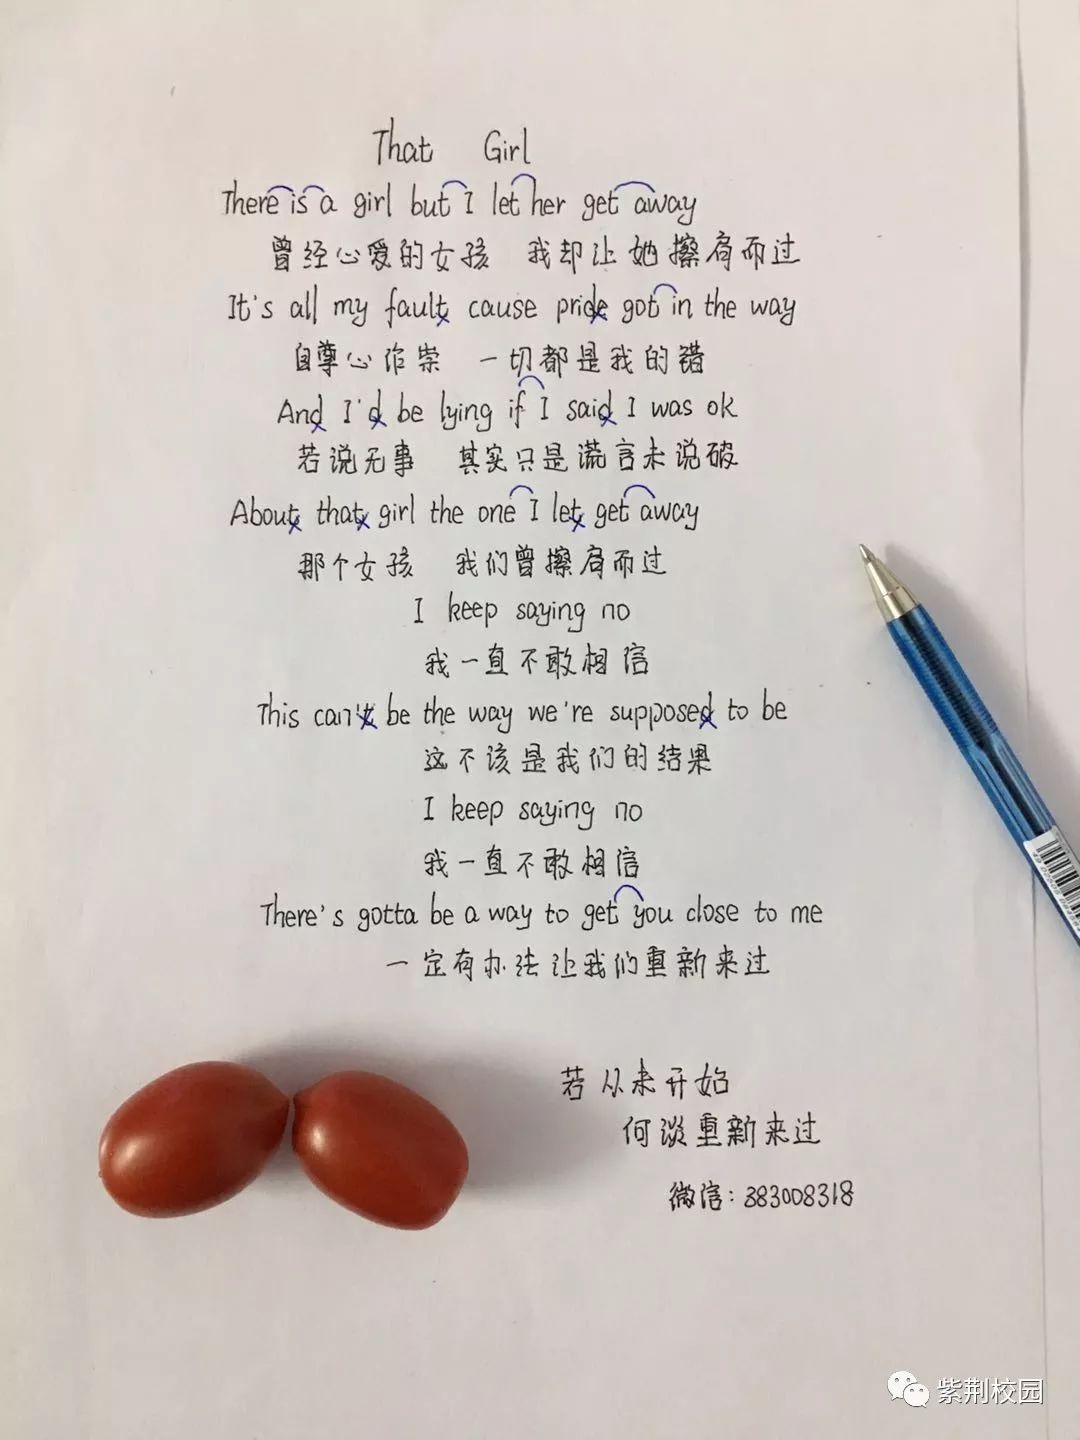 That Girl
There is a girl but I let her get away
曾经心爱的女孩 我却让她擦肩而过
It's all my fault cause pride got in the way
自尊心作祟 一切都是我的错
And I'd be lying if I said I was ok
若说无事 其实只是谎言未说破
About that girl the one I let get away
那个女孩 我们曾擦肩而过
I keep saying no
我一直不敢相信
This can't be the way we're supposed to be
这不该是我们的结果
I keep saying no
我一直不敢相信
There's gotta be a way to get you close to me
一定有办法让我们重新来过
若从未开始
何谈重新来过
微信：383008318
紫荆校园